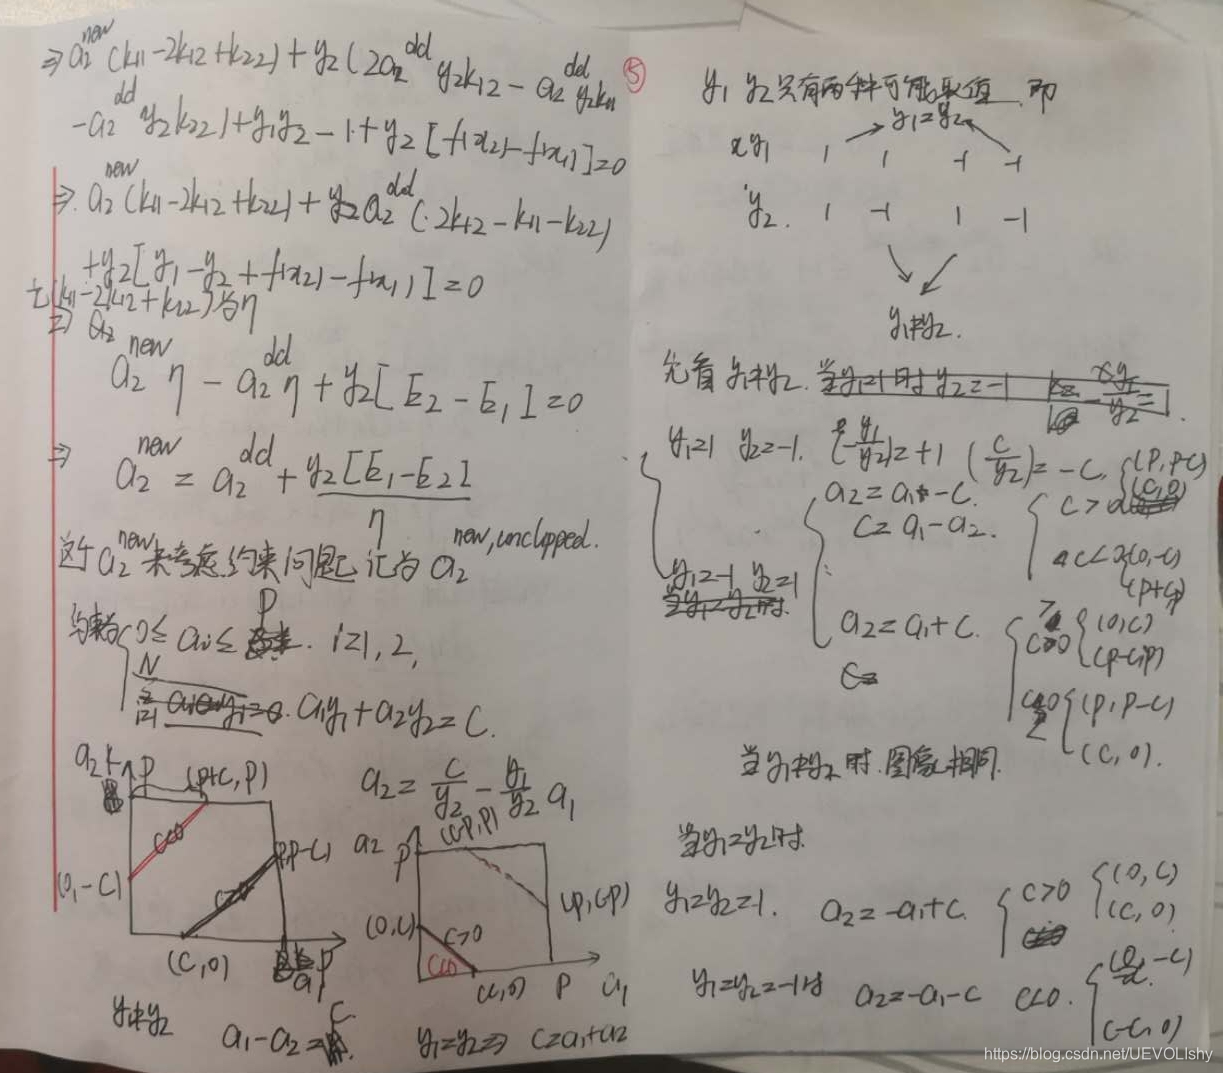 ⇒ a₂^new (k₁₁ - 2k₁₂ + k₂₂) + y₂ (2a₂^old y₂k₁₂ - a₂^old y₂k₁₁
- a₂^old y₂k₂₂) + y₁y₂ - 1 + y₂ [f(x₂) - f(x₁)] = 0
⇒ a₂^new (k₁₁ - 2k₁₂ + k₂₂) + y₂a₂^old (2k₁₂ - k₁₁ - k₂₂)
+ y₂ [y₁ - y₂ + f(x₂) - f(x₁)] = 0
(k₁₁ - 2k₁₂ + k₂₂) 为 η
⇒ a₂
a₂^new η - a₂^old η + y₂ [E₂ - E₁] = 0
⇒ a₂^new = a₂^old + y₂ [E₁ - E₂]
η
这个 a₂^new 未考虑约束问题 记为 a₂^new, unclipped.
约束为 { 0 ≤ aᵢ ≤ P . i = 1, 2,
a₁y₁ + a₂y₂ = C.
a₂ = C/y₂ - y₁/y₂ a₁
a₂
P
(P+C, P)
C<0
(0, -C)
C>0
(P, P-C)
(C, 0)
P
a₁
y₁≠y₂
a₁ - a₂ = C.
a₂
P
(C-P, P)
(P, C-P)
(0, C)
C>0
C<0
(C, 0)
P
a₁
y₁=y₂ ⇒ C = a₁ + a₂
⑤
y₁ y₂ 只有两种可能取值. 即
y₁=y₂
y₁ 1 1 -1 -1
y₂. 1 -1 1 -1
y₁≠y₂.
先看 y₁≠y₂. 当y₁=1时 y₂=-1
y₁=1 y₂=-1. (-y₁/y₂) = +1 (C/y₂) = -C.
a₂ = a₁ - C.
C = a₁ - a₂.
C>0 (P, P-C)
(C, 0)
C<0 (0, -C)
(P+C, P)
y₁=-1 y₂=1
当y₁=y₂时.
a₂ = a₁ + C.
C=
C>0 { (0, C)
(P-C, P)
C<0 { (P, P-C)
(C, 0).
当 y₁≠y₂ 时. 图像相同.
当y₁=y₂时.
y₁=y₂=1. a₂ = -a₁ + C. { C>0 { (0, C)
(C, 0)
y₁=y₂=-1时 a₂ = -a₁ - C C<0. { (0, -C)
(-C, 0)
https://blog.csdn.net/UEVOLIshy